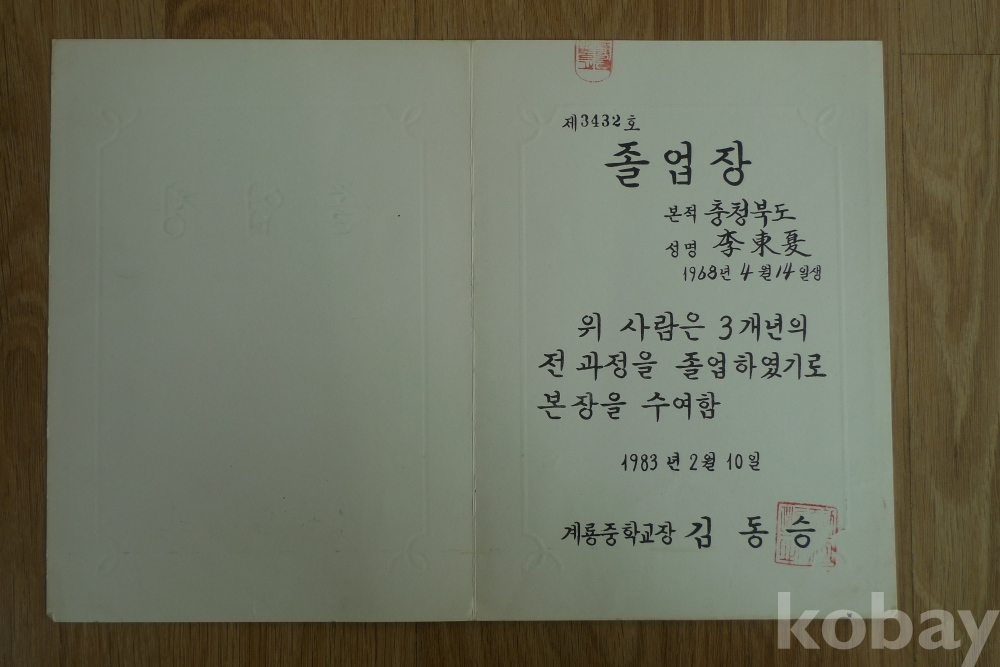 제3432호
졸업장
본적 충청북도
성명 李東夏
1968년 4월 14일생
위 사람은 3개년의
전 과정을 졸업하였기로
본장을 수여함
1983년 2월 10일
계룡중학교장 김동승
kobay